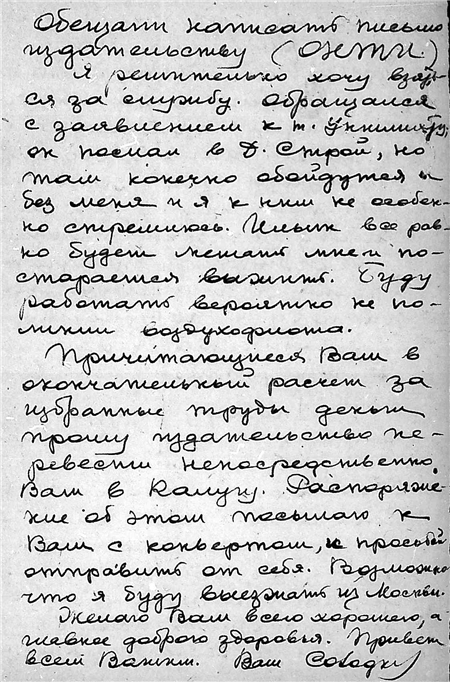 Обещали написать письмо
издательству (ОНТИ.)
Я решительно хочу взять-
ся за службу. Обращался
с заявлением к т.
он послал в Д. Строй, но
там конечно обойдутся и
без меня и я к ним не особен-
но стремлюсь. Ильин все рав-
но будет мешать мне и по-
старается выжить. Буду
работать вероятно не по
линии воздухофлота.
Причитающиеся Вам в
окончательный расчет за
избранные труды деньги
прошу издательство пе-
ревести непосредственно
Вам в Калугу. Распоряже-
ние об этом посылаю к
Вам с конвертом, и просьбой
отправить от себя. Возможно
что я буду выезжать из Москвы.
Желаю Вам всего хорошего, а
главное доброго здоровья. Привет
всем Вашим. Ваш